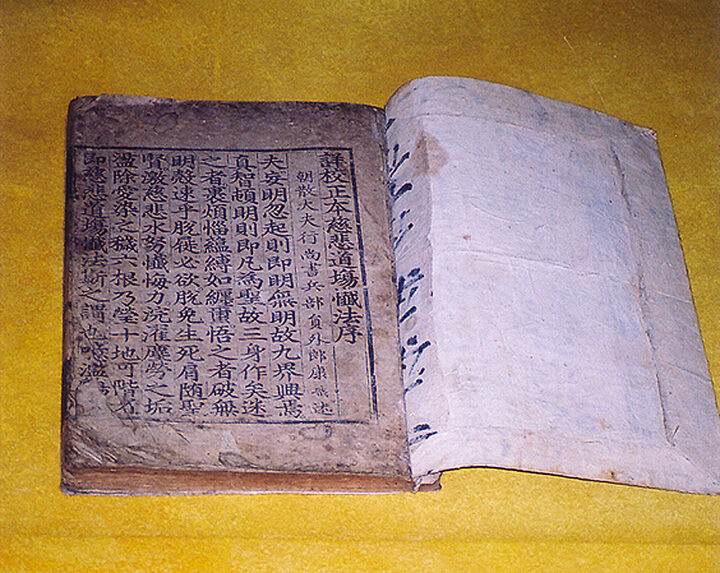 詳校正本慈悲道場懺法序
朝散大夫行尚書兵部員外郎康 述
夫妄明忽起則即明無明故九界興焉
真智頓明則即凡為聖故三身作矣迷
之者裹煩惱緼縛如纏 悟之者破無
明殼速乎脫 必欲脫免生死肩随聖
賢激慈悲水努懺悔力浣濯塵勞之垢
盪除愛染之穢六根乃瑩十地可階者
即慈悲道場懺法斯之謂也